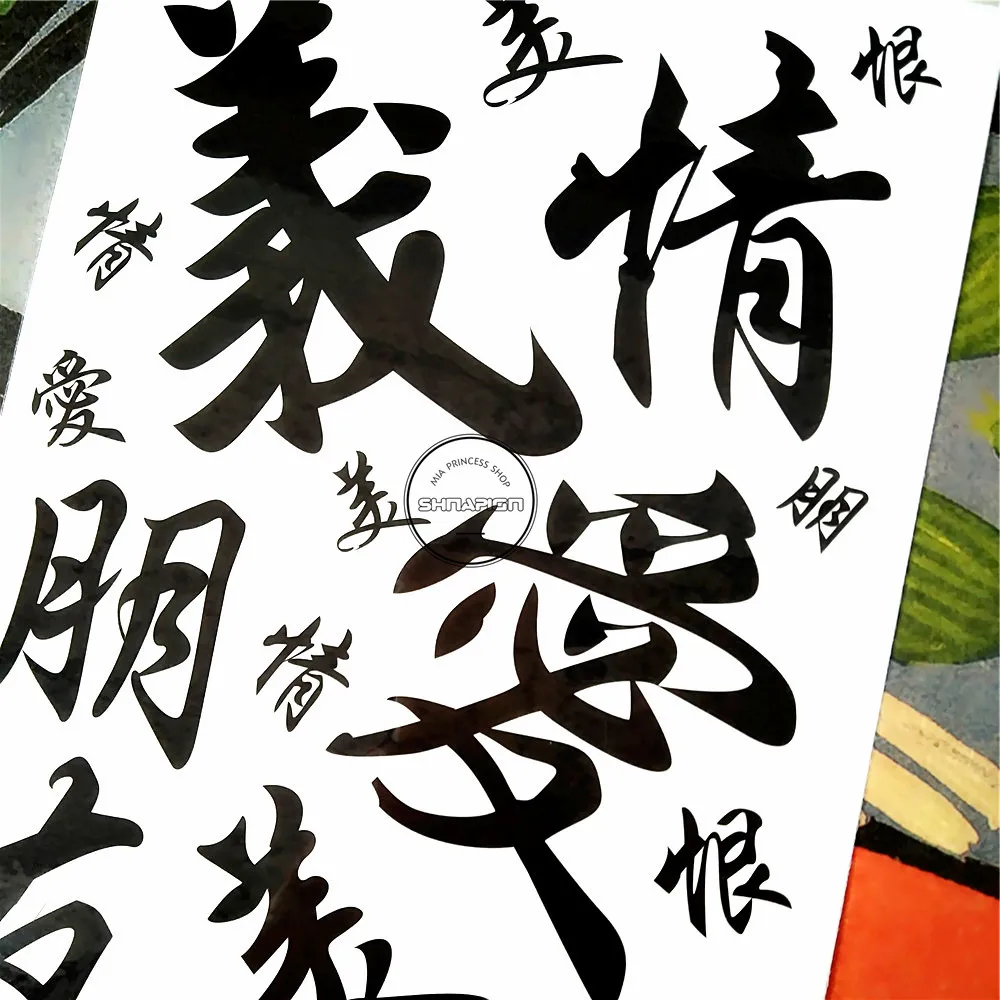 恨
義
情
情
愛
MIA PRINCESS SHOP
SHNAPIGN
朋
愛
朋
情
恨